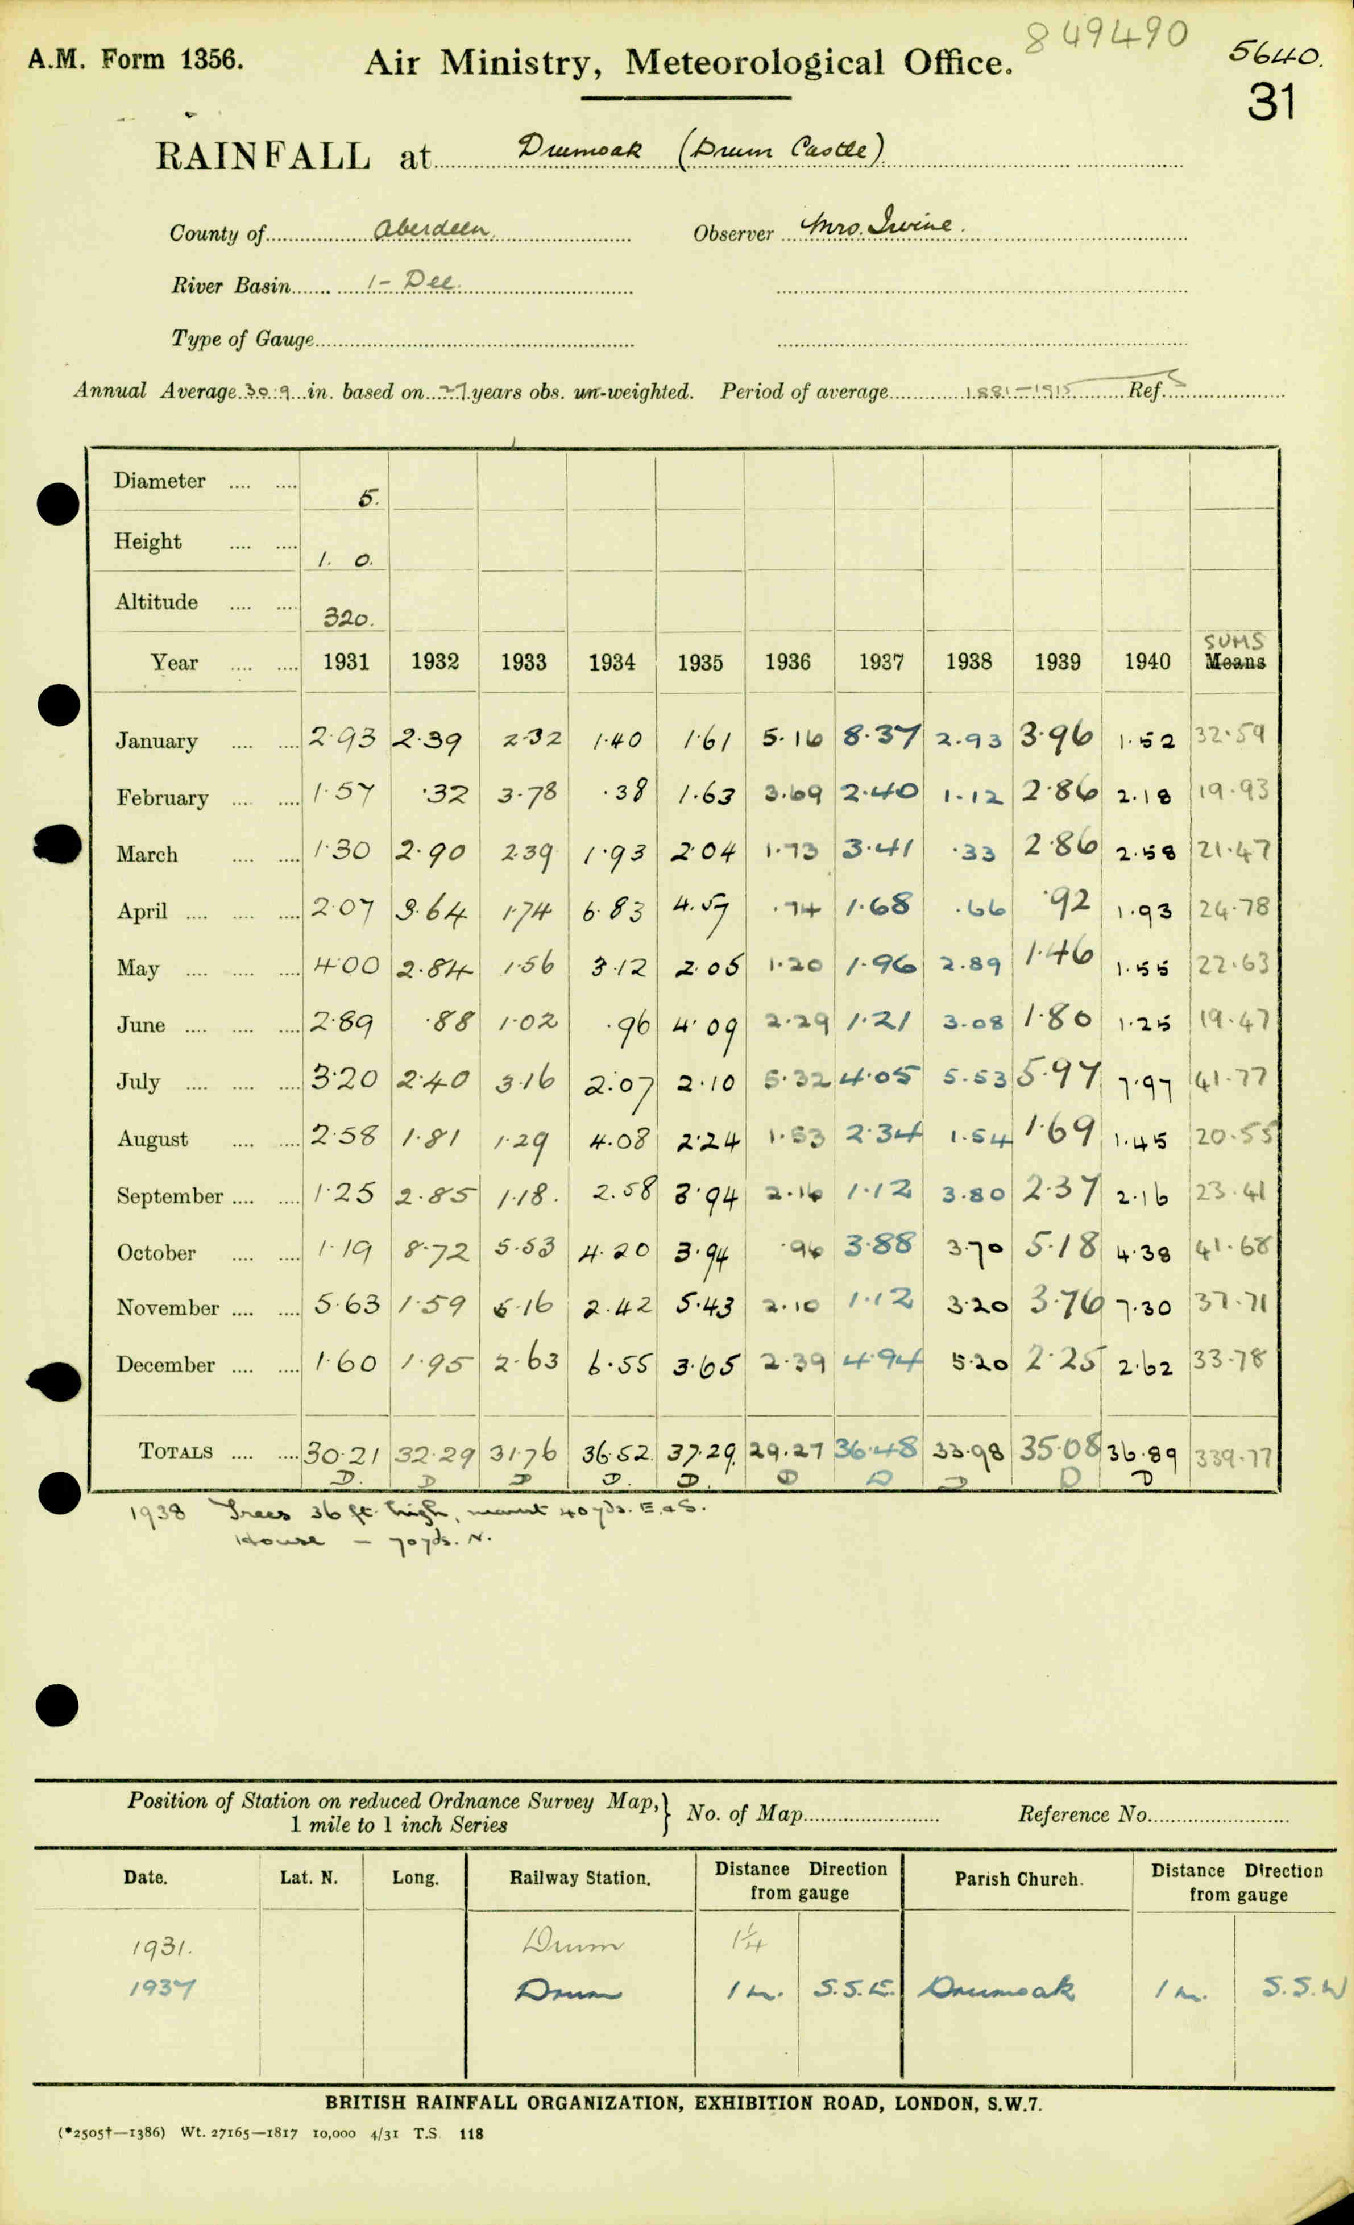 849490
A.M. Form 1356. Air Ministry, Meteorological Office. 5640.
31
RAINFALL at Drumoak (Drum Castle)
County of Aberdeen. Observer Mrs. Irvine.
River Basin 1 - Dee.
Type of Gauge
Annual Average 30.9 in. based on 27 years obs. un-weighted. Period of average 1881-1915 Ref. S
Diameter 5.
Height 1. 0.
Altitude 320.
SUMS
Year 1931 1932 1933 1934 1935 1936 1937 1938 1939 1940 Means
January 2.93 2.39 2.32 1.40 1.61 5.16 8.37 2.93 3.96 1.52 32.59
February 1.57 .32 3.78 .38 1.63 3.69 2.40 1.12 2.86 2.18 19.93
March 1.30 2.90 2.39 1.93 2.04 1.73 3.41 .33 2.86 2.58 21.47
April 2.07 3.64 1.74 6.83 4.57 .74 1.68 .66 .92 1.93 24.78
May 4.00 2.84 1.56 3.12 2.05 1.20 1.96 2.89 1.46 1.55 22.63
June 2.89 .88 1.02 .96 4.09 2.29 1.21 3.08 1.80 1.25 19.47
July 3.20 2.40 3.16 2.07 2.10 5.32 4.05 5.53 5.97 7.97 41.77
August 2.58 1.81 1.29 4.08 2.24 1.53 2.34 1.54 1.69 1.45 20.55
September 1.25 2.85 1.18. 2.58 3.94 2.16 1.12 3.80 2.37 2.16 23.41
October 1.19 8.72 5.53 4.20 3.94 .96 3.88 3.70 5.18 4.38 41.68
November 5.63 1.59 5.16 2.42 5.43 2.10 1.12 3.20 3.76 7.30 37.71
December 1.60 1.95 2.63 6.55 3.65 2.39 4.94 5.20 2.25 2.62 33.78
TOTALS 30.21 32.29 31.76 36.52 37.29. 29.27 36.48 33.98 35.08 36.89 339.77
D. D D D. D. D D D D D
1938 Trees 36 ft. high, nearest 40 yds. E. & S.
House - 70 yds. N.
Position of Station on reduced Ordnance Survey Map,} No. of Map Reference No.
1 mile to 1 inch Series
Date. Lat. N. Long. Railway Station. Distance Direction from gauge Parish Church. Distance Direction from gauge
1931. Drum 1¼
1937 Drum 1 m. S.S.E. Drumoak 1 m. S.S.W
BRITISH RAINFALL ORGANIZATION, EXHIBITION ROAD, LONDON, S.W.7.
(*2505†—1386) Wt. 27165—1817 10,000 4/31 T.S. 118